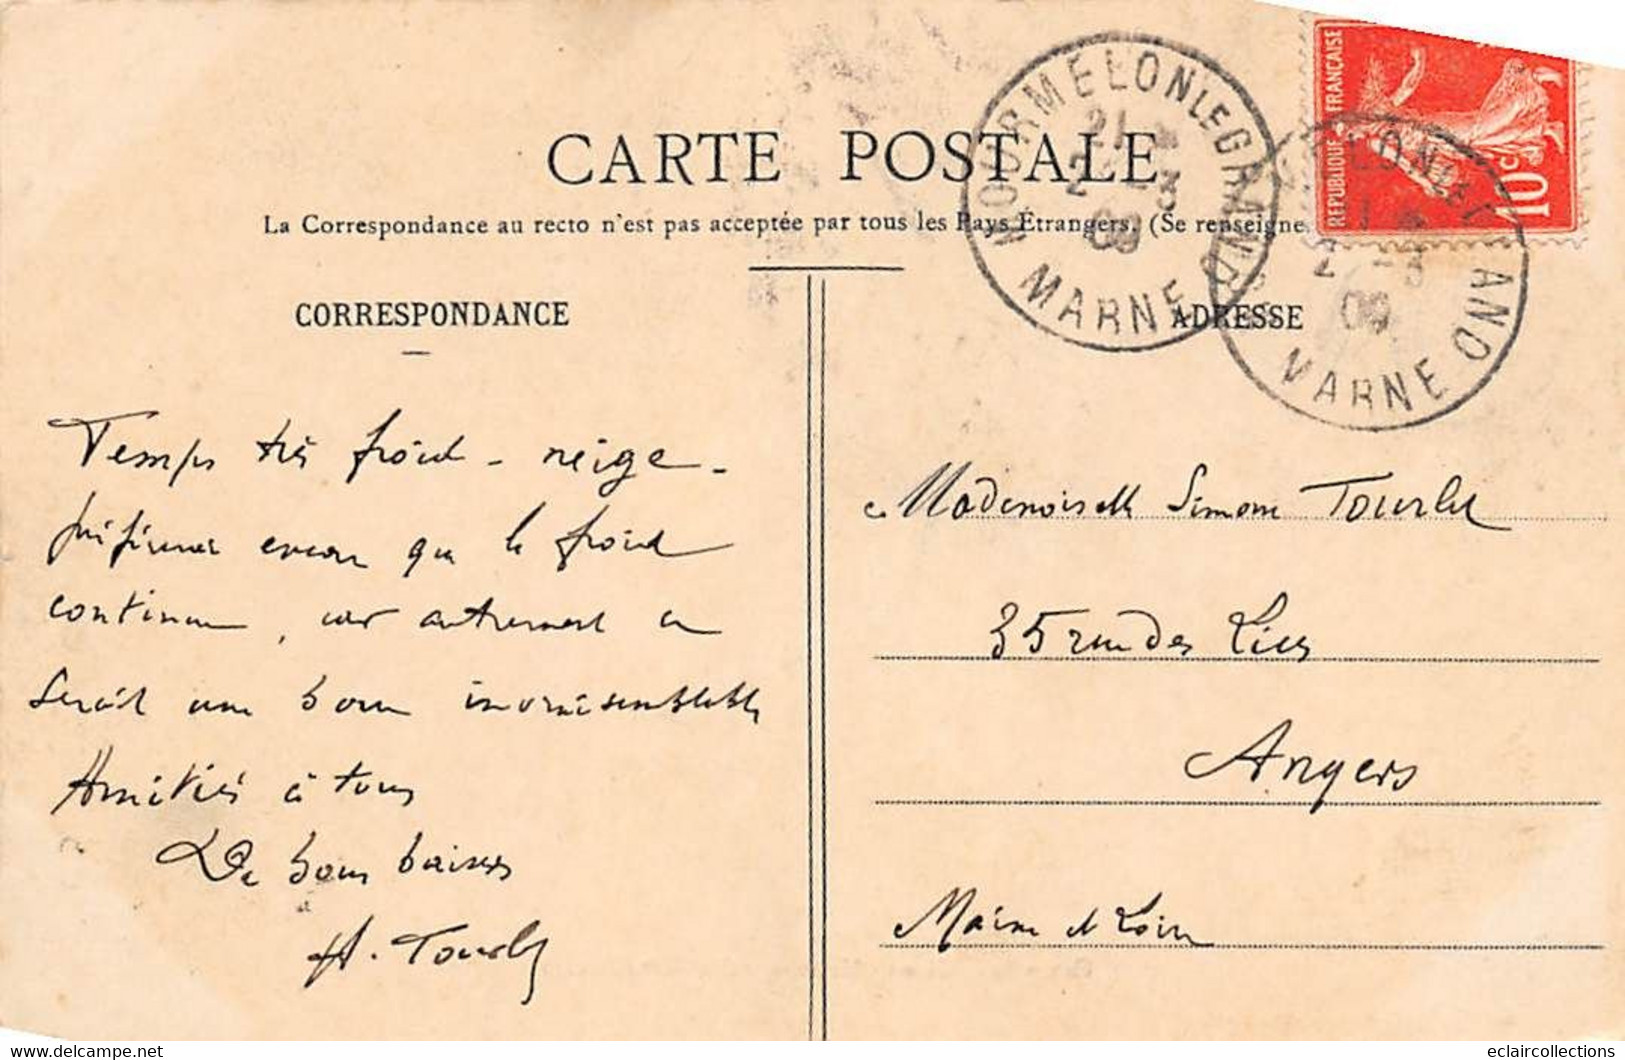 CARTE POSTALE
La Correspondance au recto n'est pas acceptée par tous les Pays Étrangers. (Se renseigne
CORRESPONDANCE
ADRESSE
MOURMELON LE GRAND
21
2 - 3
09
MARNE
REPUBLIQUE FRANÇAISE
10c
MARNE
Temps très froid - neige -
préférence encore que le froid
continue, car autrement ce
serait une boue invraisemblable
Amitiés à tous
De bons baisers
H. Tourlet
Mademoiselle Simone Tourlet
35 rue des Lices
Angers
Maine et Loire
eclaircollections